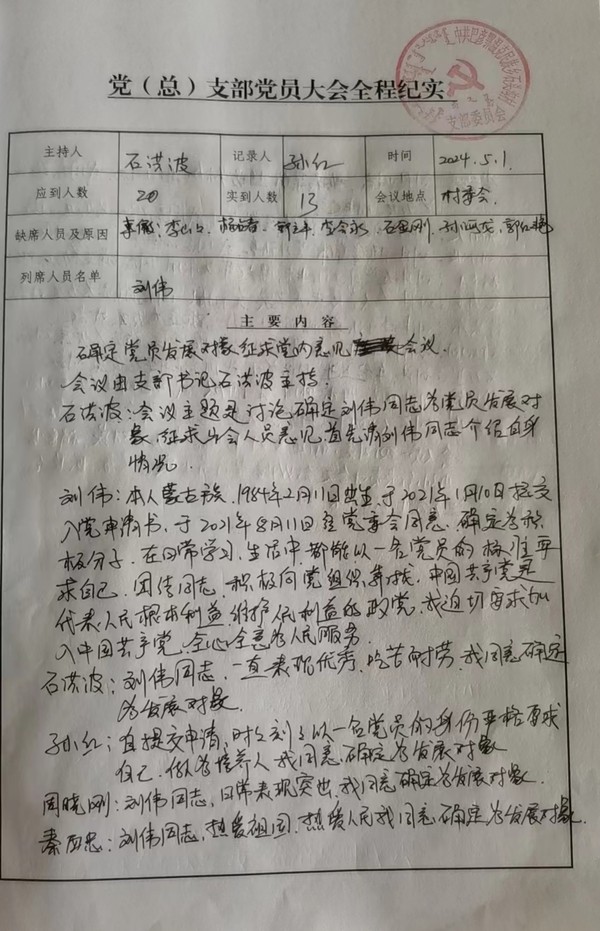 党（总）支部党员大会全程纪实
支部委员会
主持人 石洪波 记录人 孙红 时间 2024.5.1
应到人数 20 实到人数 13 会议地点 村委会
缺席人员及原因
列席人员名单 刘伟
主要内容
确定党员发展对象征求党内意见 会议
会议由支部书记石洪波主持
石洪波：会议主题是讨论确定刘伟同志为党员发展对
象，征求与会人员意见，首先请刘伟同志介绍自身
情况。
刘伟：本人蒙古族，1984年2月11日出生，于2021年1月10日提交
入党申请书，于2021年8月11日经党委会同意，确定为积
极分子，在日常学习，生活中，都能以一名党员的标准要
求自己，团结同志，积极向党组织靠拢，中国共产党是
代表人民根本利益，维护人民利益的政党，我迫切要求加
入中国共产党，全心全意为人民服务
石洪波：刘伟同志，一直表现优秀，吃苦耐劳，我同意确定
为发展对象
孙红：自提交申请，时时刻刻以一名党员的身份严格要求
自己，做为培养人我同意确定为发展对象
周晓刚：刘伟同志，日常表现突出，我同意确定为发展对象
秦 忠：刘伟同志，热爱祖国，热爱人民我同意确定为发展对象